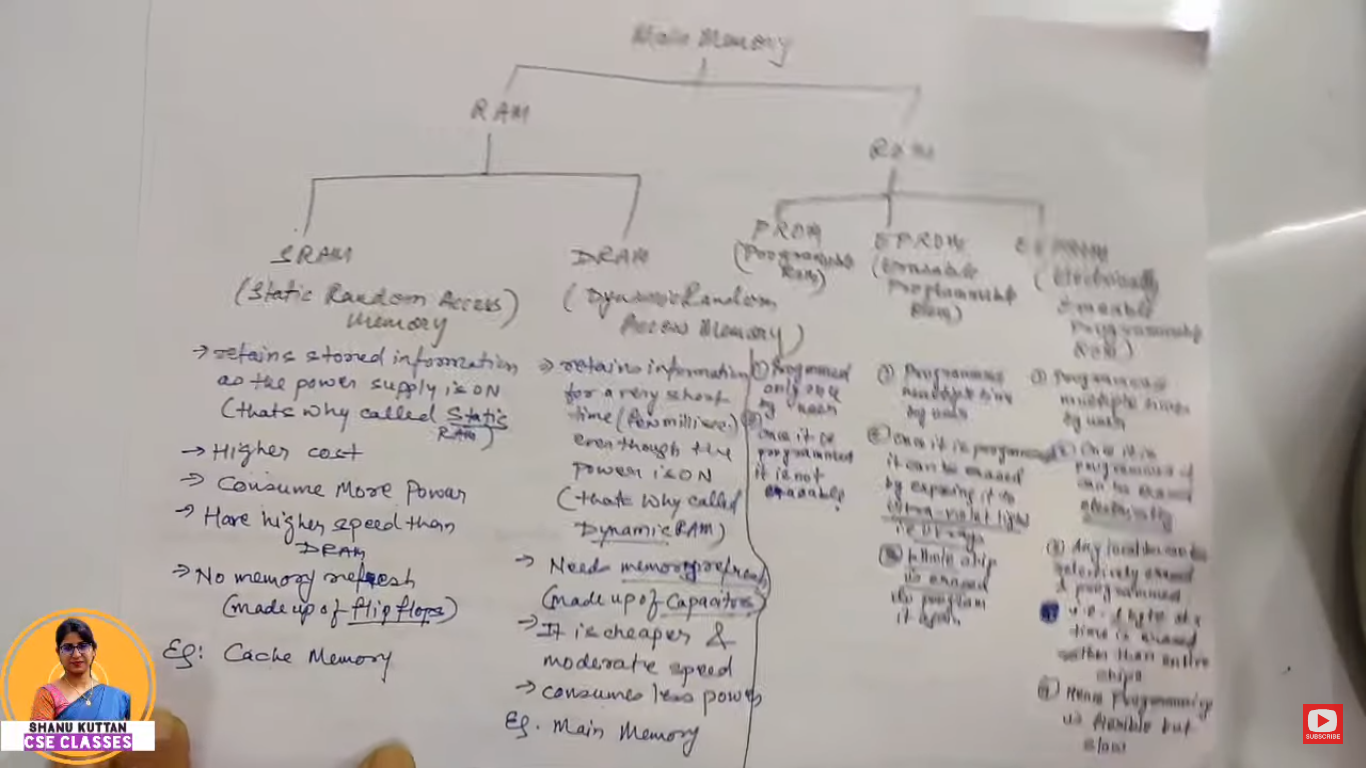 Main Memory
RAM
ROM
SRAM
(Static Random Access
Memory)
→ retains stored information
as the power supply is ON
(thats why called Static
RAM)
→ Higher cost
→ Consume More Power
→ Have higher speed than
DRAM
→ No memory refresh
(made up of flip flops)
Eg: Cache Memory
DRAM
(Dynamic Random
Access Memory)
→ retains information
for a very short
time (few millisec.)
even though the
power is ON
(thats why called
Dynamic RAM)
→ Need memory refresh
(made up of Capacitors)
→ It is cheaper &
moderate speed
→ consumes less power
Eg. Main Memory
PROM
(Programmable
ROM)
① Programmed
only once
by user
②
Once it is
programmed
it is not
erasable
EPROM
(Erasable
Programmable
Rom)
① Programmed
multiple time
by user
② Once it is programmed
it can be erased
by exposing it to
ultra-violet light
③ Whole chip
is erased
to program
it again
EEPROM
(Electrically
Erasable
Programmable
ROM)
① Programmed
multiple times
by user
② Once it is
programmed it
can be erased
electrically
③ Any location can be
selectively erased
& programmed
i.e. 1 byte at a
time is erased
rather than entire
chips
④ Hence Programming
is flexible but
slow
SHANU KUTTAN
CSE CLASSES
SUBSCRIBE